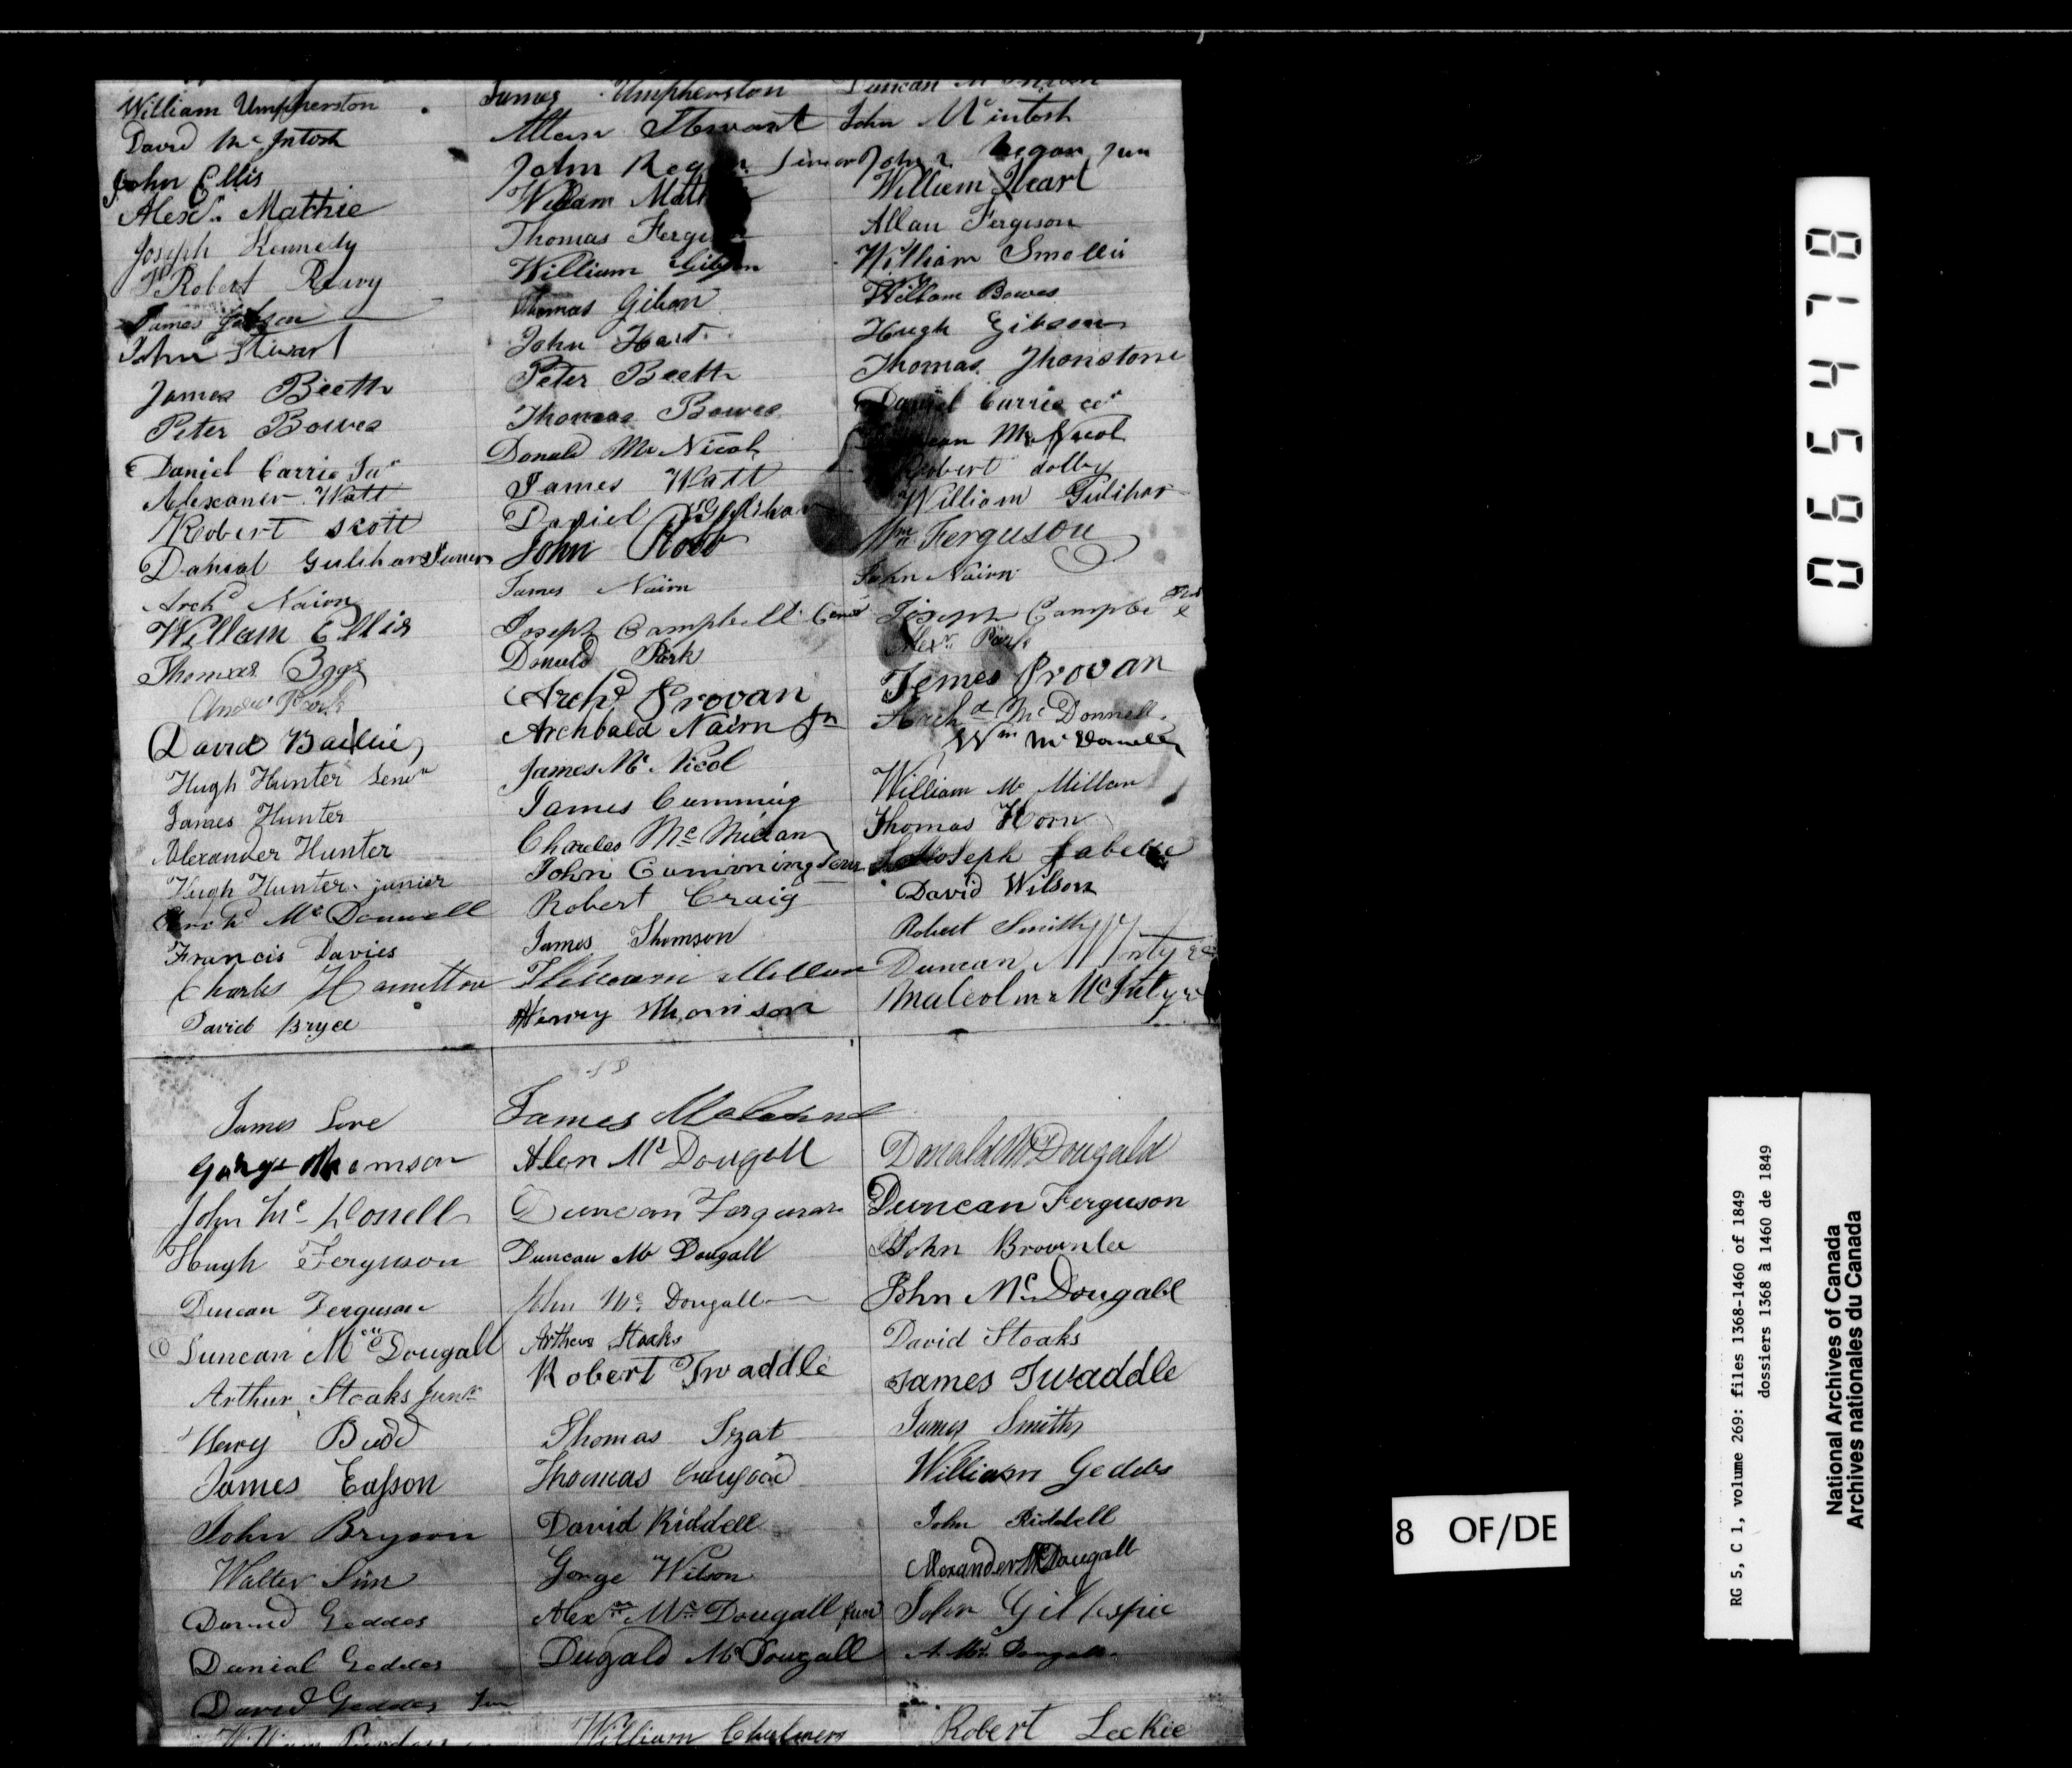 William Umpherston James Umpherston Duncan
David McIntosh Allan Stewart John McIntosh
John Ellis John Senior John Regan Jun
Alexr. Mathie William William Heart
Joseph Kennedy Thomas Allan Ferguson
Robert Reavy William Gibson William Smellie
James Thomas Gibson William Bowes
John Stewart John Hart Hugh Gibson
James Beeth Peter Beeth Thomas Jhonstone
Peter Bowes Thomas Bowes Daniel Currie
Daniel Carrie Jur Donald McNicol McNicol
Alexaner Watt James Watt Robert dolby
Robert Scott Daniel William Gulihar
Danial Gulihar Juner John Robb Wm Ferguson
Archd Nairn James Nairn John Nairn
William Ellis Joseph Campbell Joseph
Thomas Eggs Donald Park Alexr. Park
Andw Park Archd Provan James Provan
David Bailie Archbald Nairn Jn Archd McDonnell
Wm
Hugh Hunter Senr James McNicol William McMillan
James Hunter James Cumming Thomas Horn
Alexander Hunter Charles McMillan Joseph Labelle
Hugh Hunter junier John Cumming David Wilson
Archd McDonnell Robert Craig Robert Smith
Francis Davies James Thomson Duncan
Charles Hamilton Malcolm McIntyre
David Bryce Henry
James Love James
George Thomson Alen McDougall Donald McDougald
John Mc Donell Duncan Ferguson Duncan Ferguson
Hugh Ferguson Duncan McDougall John Brownlee
Duncan Ferguson John McDougall John McDougall
Duncan McDougall Arthur Stoaks David Stoaks
Arthur Stoaks Junr Robert Twaddle James Twaddle
Henry Budd Thomas Izat James Smith
James Easson Thomas William Geddes
John Bryson David Riddell John Riddell
Walter Sim George Wilson Alexander McDougall
David Geddes Alexr McDougall Junr John Gillespie
Danial Geddes Dugald McDougall A. McDougall
David Geddes Jun
William William Chalmers Robert Leckie
065478
8 OF/DE
RG 5, C 1, volume 269: files 1368-1460 of 1849
dossiers 1368 à 1460 de 1849
National Archives of Canada
Archives nationales du Canada